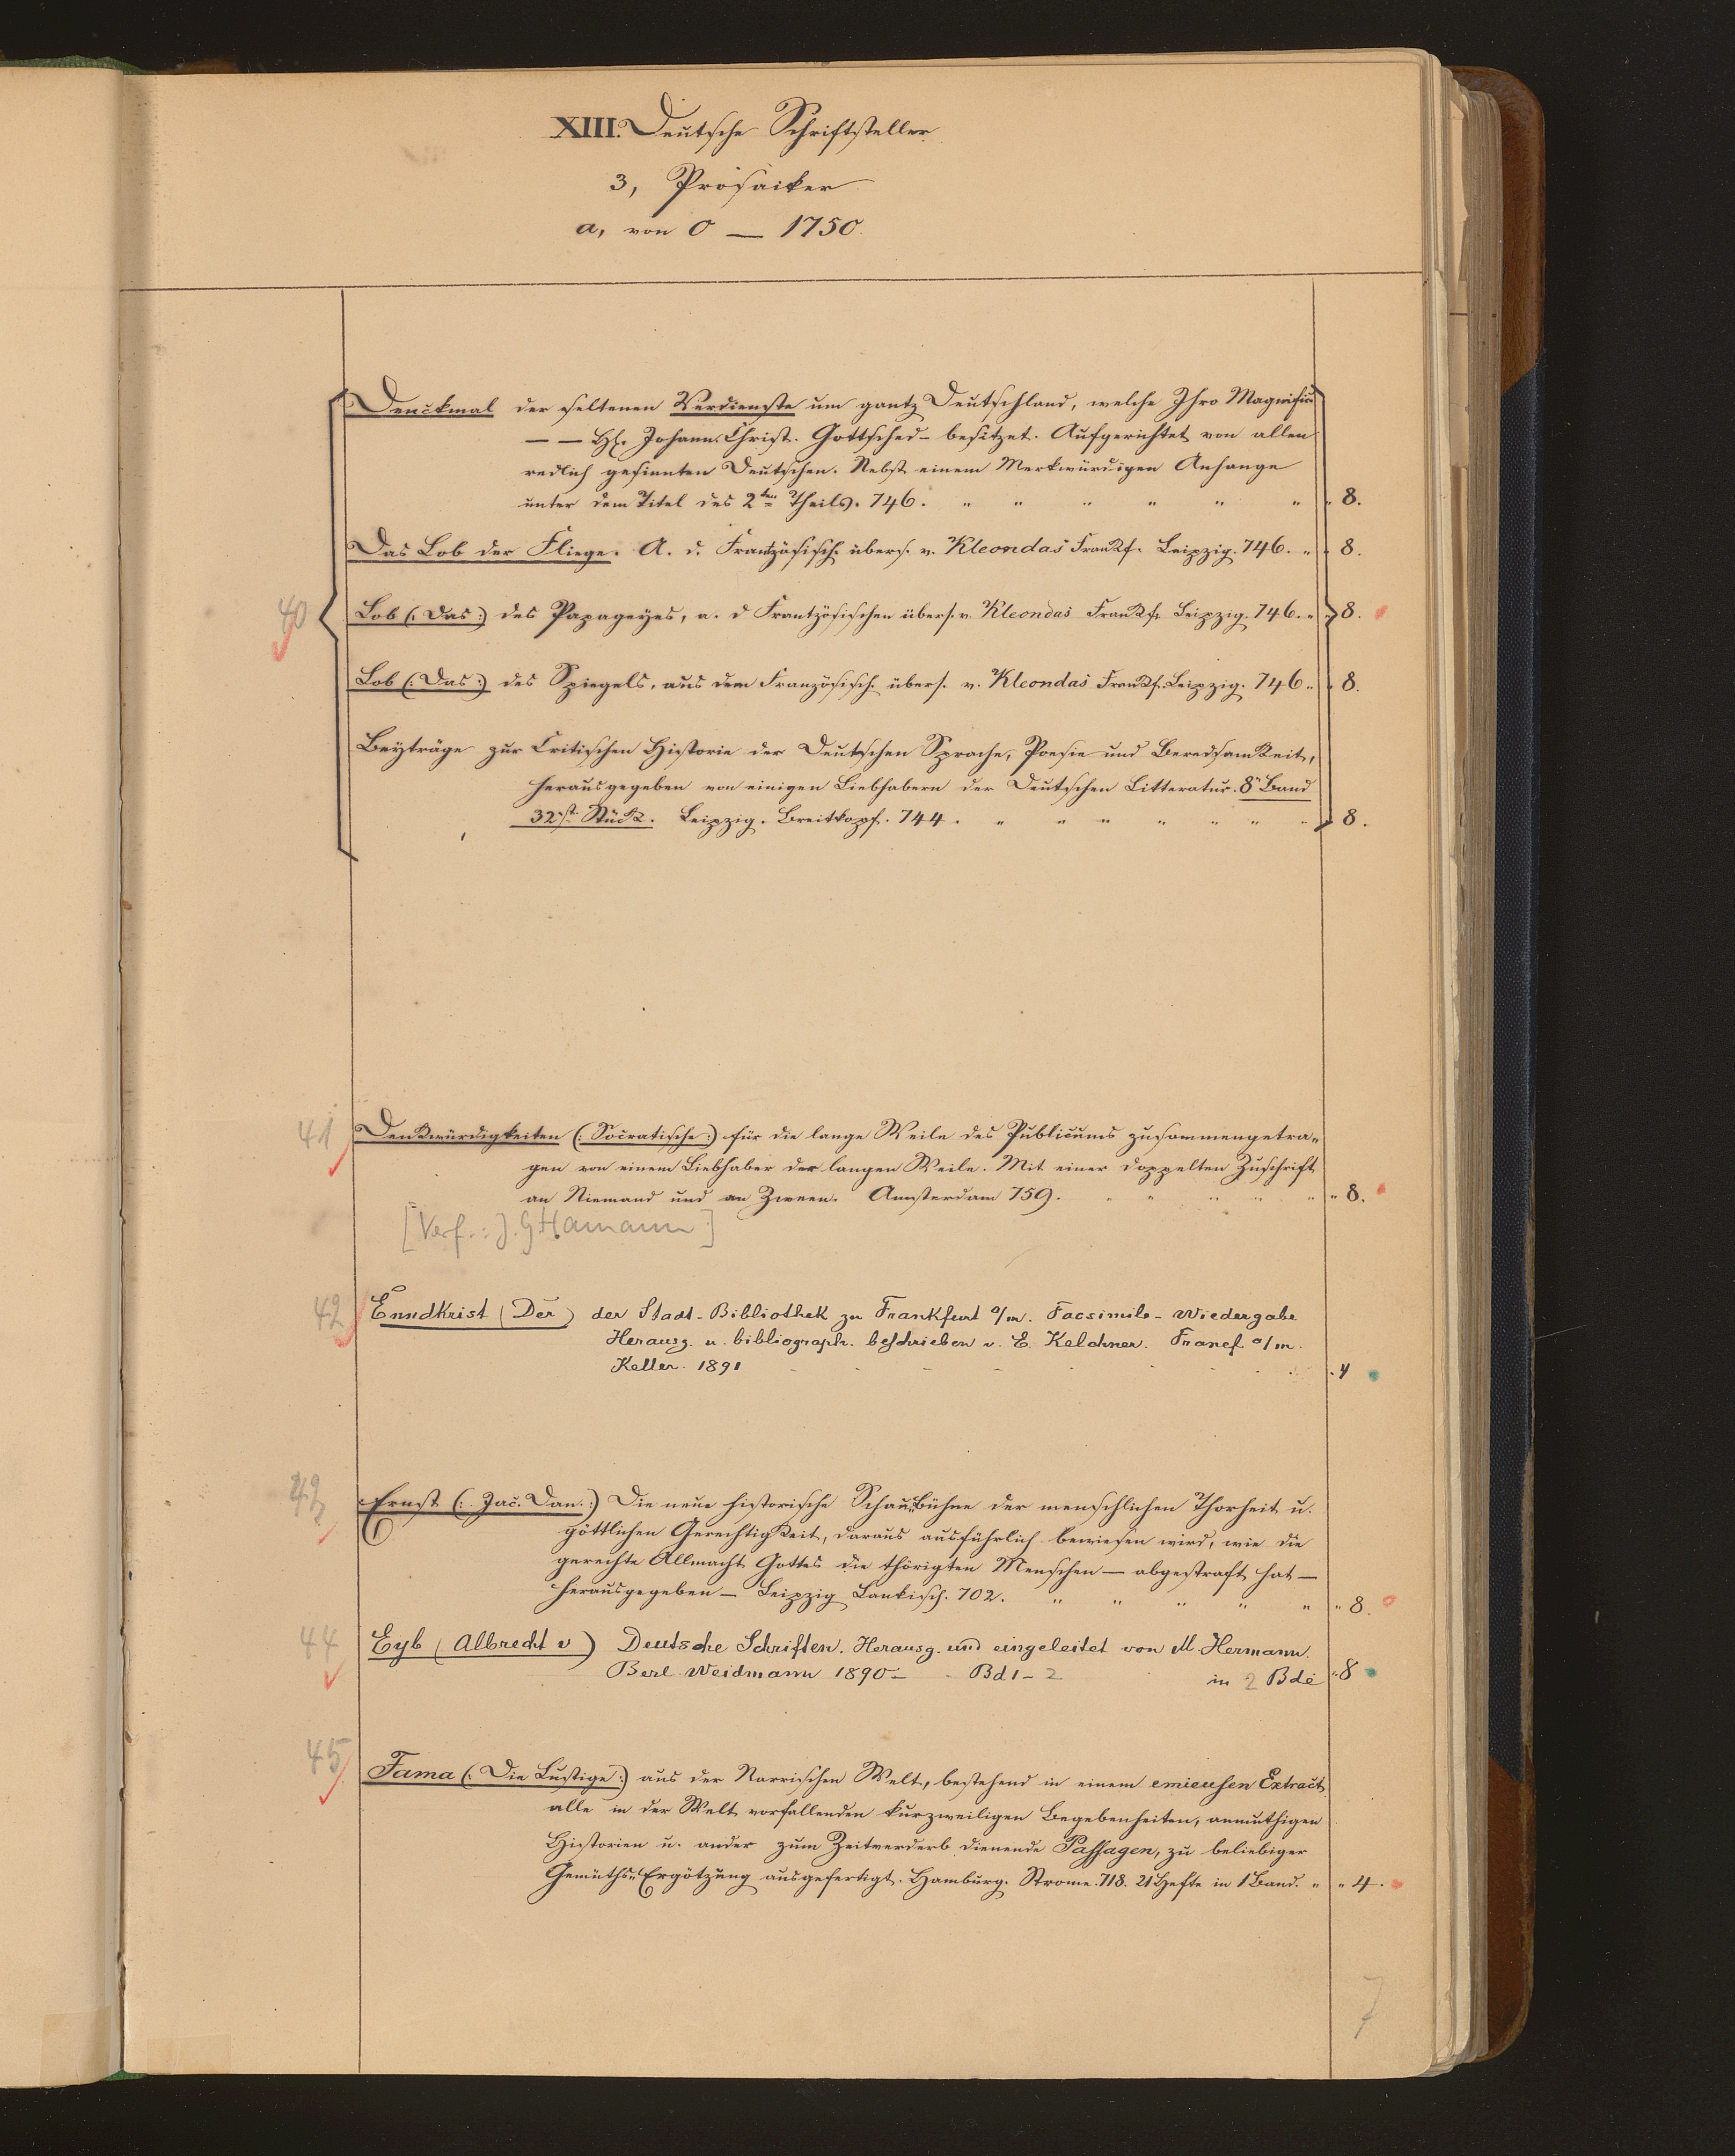 XIII. Deutsche Schriftsteller
3, Prosaiker
a, von 0 — 1750.
Denckmal der seltenen Verdienste um gantz Deutschland, welche Ihro Magnific
— — H. Johann Christ. Gottsched - besitzet. Aufgerichtet von allen
redlich gesinnten Deutschen. Nebst einem Merkwürdigen Anhange
unter dem Titel des 2ten Theils. 746. " " " " " " " 8.
Das Lob der Fliege. A. d. Frantzösisch. übers. v. Kleondas Frankf. Leipzig. 746. " " 8.
40 Lob (: Das :) des Papageyes, a. d Frantzösischen übers. v. Kleondas Frankf. Leipzig. 746. " " 8.
Lob (: Das :) des Spiegels, aus dem Französisch. übers. v. Kleondas Frankf. Leipzig. 746 " " 8.
Beyträge zur Critischen Historie der Deutschen Sprache, Poesie und Beredsamkeit,
herausgegeben von einigen Liebhabern der Deutschen Litteratur. 8r Band
32st. Stück. Leipzig. Breitkopf. 744. " " " " " " " 8.
41 Denkwürdigkeiten (: Socratische :) für die lange Weile des Publicums zusammengetra„
gen von einem Liebhaber der langen Weile. Mit einer doppelten Zuschrift
an Niemand und an Zween. Amsterdam 759. " " " " " " 8.
[Verf.: J. G Hamann]
42 Enndkrist (Der) der Stadt-Bibliothek zu Frankfurt a/m. Facsimile-Wiedergabe
Herausg. u. bibliograph. beschrieben v. E. Kelchner. Francf. a/m.
Keller. 1891 - - - - - - - 4
43 Ernst (: Jac. Dan. :) Die neue historische Schau„bühne der menschlichen Thorheit u.
göttlichen Gerechtigkeit, daraus ausführlich bewiesen wird, wie die
gerechte Allmacht Gottes die thörigten Menschen — abgestraft hat —
herausgegeben — Leipzig Lankisch. 702. " " " " " " 8.
44 Eyb (Albrecht v) Deutsche Schriften. Herausg. und eingeleitet von M. Hermann.
Berl. Weidmann 1890 - - Bd 1 - 2 in 2 Bde " 8
45 Fama (: Die Lustige :) aus der Narrischen Welt, bestehend in einem Extract
alle in der Welt vorfallenden kurzweiligen Begebenheiten, anmuthigen
Historien u. ander zum Zeitverderb dienende Passagen, zu beliebiger
Gemüths„Ergötzung ausgefertigt. Hamburg. Strome. 718. 21 Hefte in 1 Band. " " 4.
7